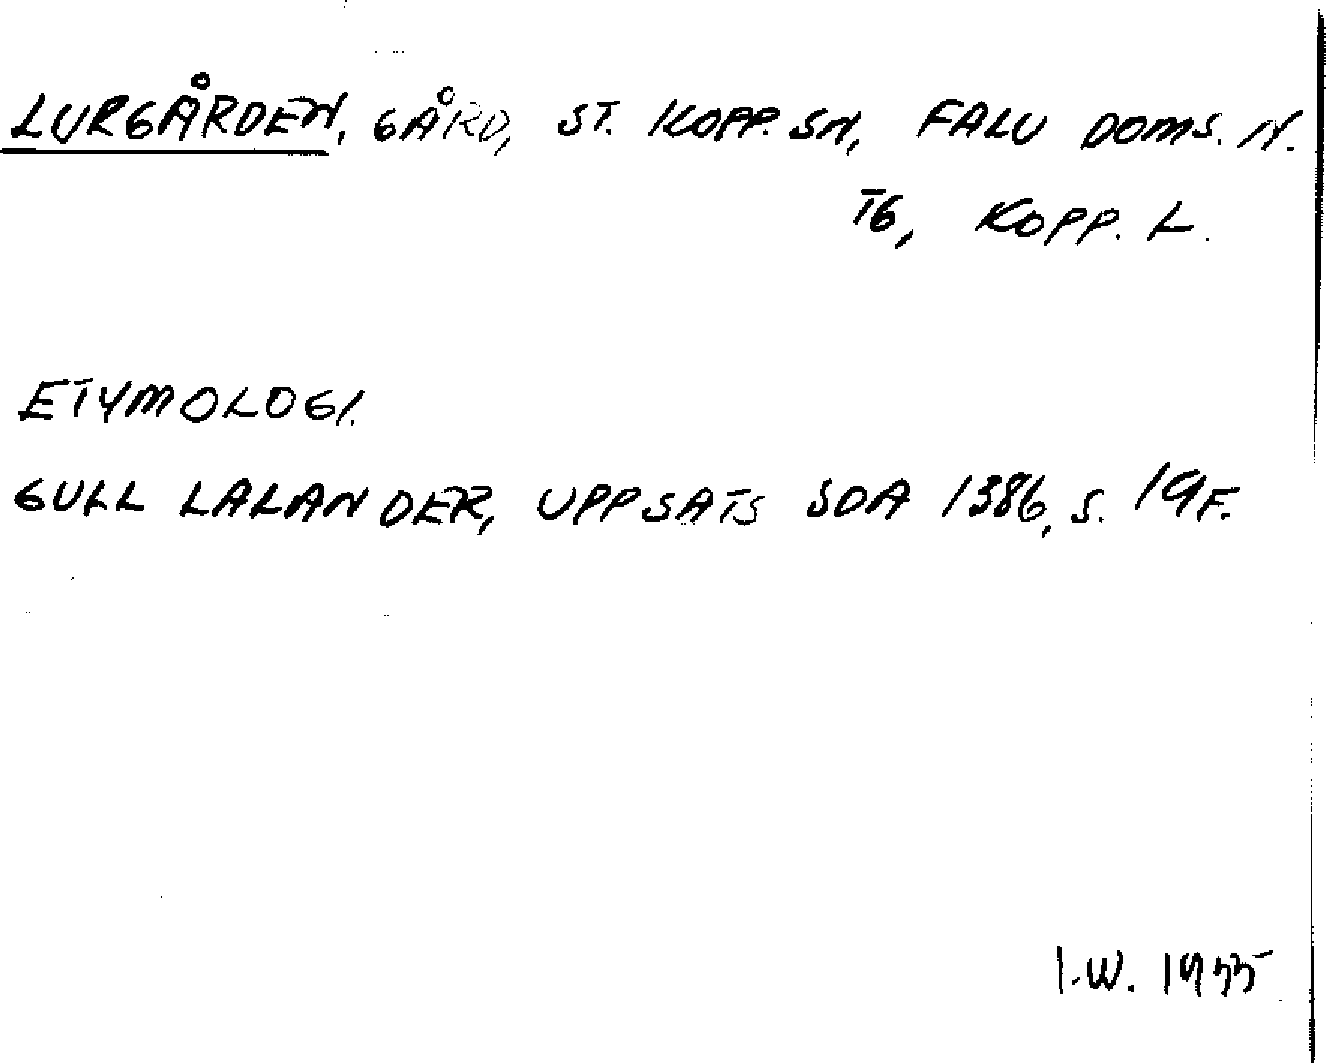 LURGÅRDEN, GÅRD, ST. KOPP. SN, FALU DOMS. N.
TG, KOPP. L.
ETYMOLOGI.
GULL LALANDER, UPPSATS SOA 1386, S. 19F.
I.W. 1955